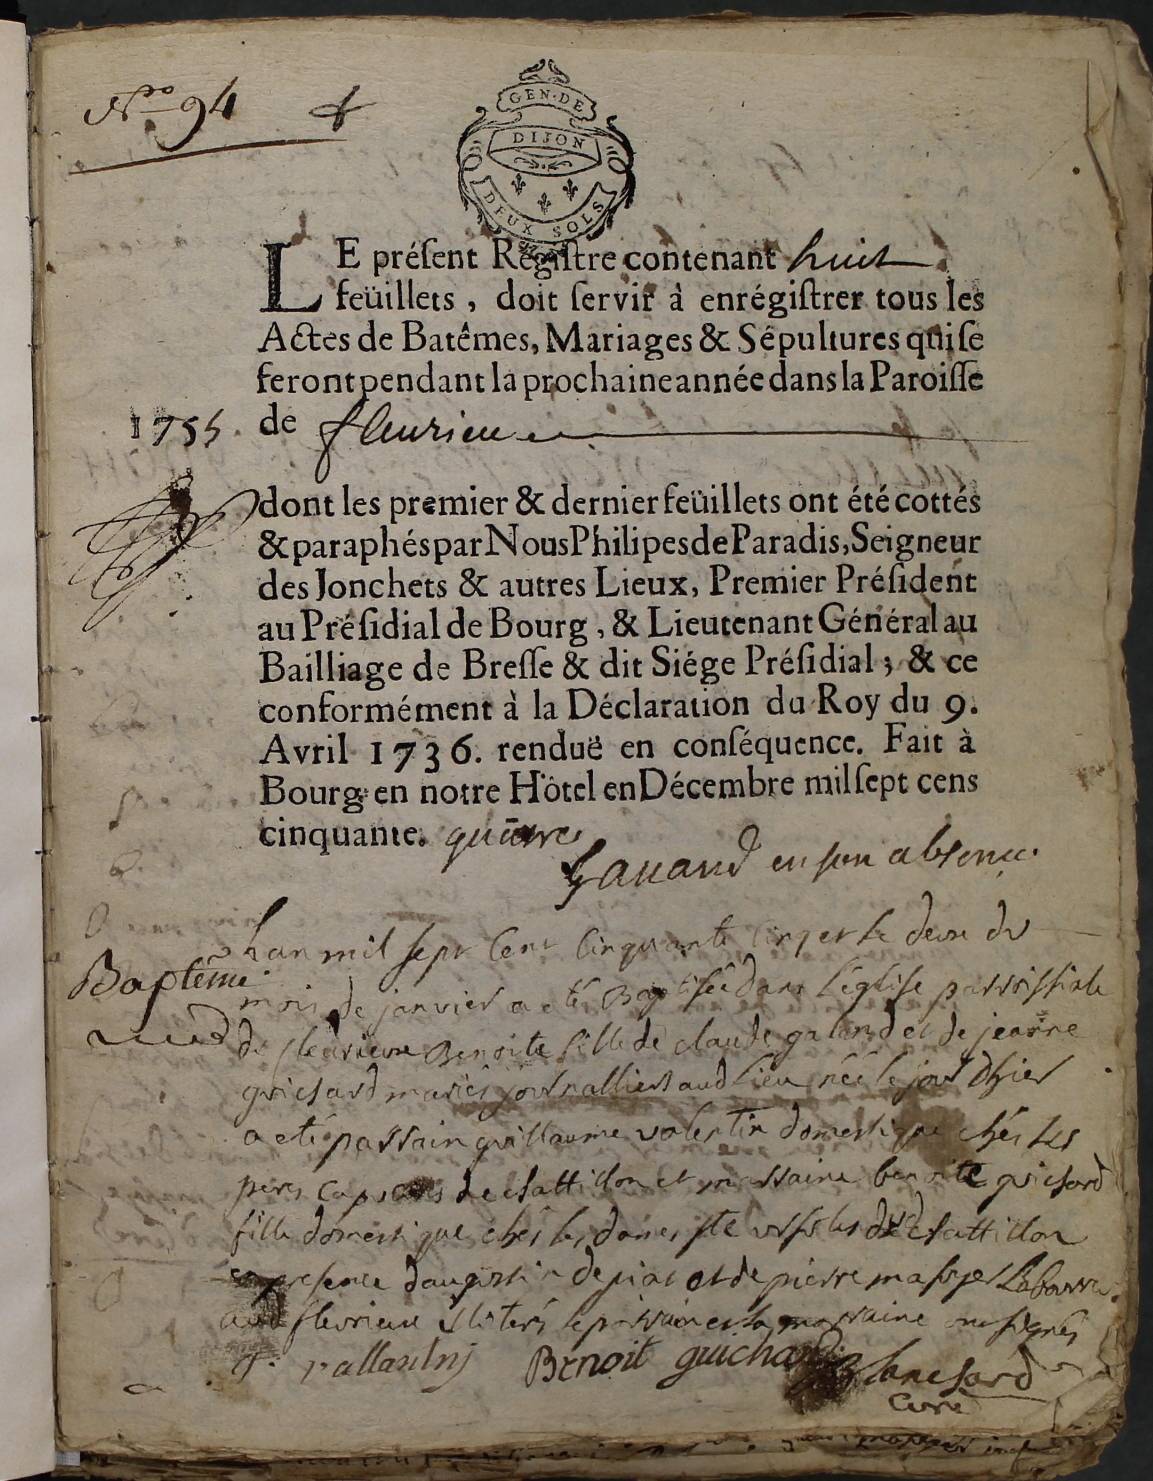 Nro 94
GEN·DE
DIJON
DEUX SOLS
LE préſent Regiſtre contenant huit
feüillets, doit ſervir à enrégiſtrer tous les
Actes de Batêmes, Mariages & Sépultures qui ſe
feront pendant la prochaine année dans la Paroiſſe
1755. de fleurieu
dont les premier & dernier feüillets ont été cottés
& paraphés par Nous Philipes de Paradis, Seigneur
des Jonchets & autres Lieux, Premier Préſident
au Préſidial de Bourg, & Lieutenant Général au
Bailliage de Breſſe & dit Siége Préſidial; & ce
conformément à la Déclaration du Roy du 9.
Avril 1736. renduë en conſéquence. Fait à
Bourg en notre Hôtel en Décembre mil ſept cens
cinquante. quatre
en son absence.
Lan mil sept cent cinquante cinq et le deux du
Baptême
mois de janvier a eté Baptisée dans l'église parroissiale
de fleurieux Benoite fille de claude galand et de jeanne
guichard mariés journalliers aud lieu née le jour d'hier
a eté parrain guillaume valentin domestique chés les
peres capucins de chattillon et marraine benoite guichard
fille domestique chés les dames ste ursules dud chattillon
en presence d'augustin depiat et de pierre
aud fleurieux illiterés le parrain et la marraine ont signés
Benoit guichard Blanchard
curé